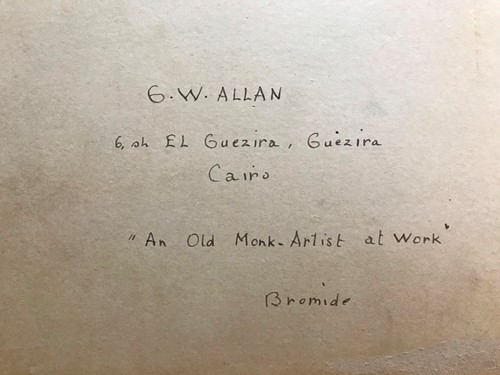 G. W. ALLAN
6, sh EL Guezira, Guezira
Cairo
"An Old Monk-Artist at Work"
Bromide